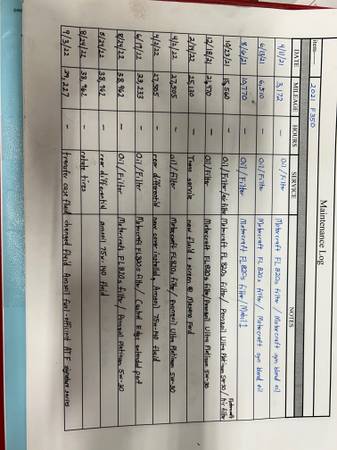 Maintenance Log
Item: 2021 F350
DATE MILEAGE HOURS SERVICE NOTES
4/11/21 3,172 - Oil/Filter Motorcraft FL 820s filter / Motorcraft syn blend oil
6/13/21 6,510 - Oil/Filter Motorcraft FL 820s filter / Motorcraft syn blend oil
8/6/21 10,770 - Oil/Filter Motorcraft FL 820s filter / Mobil 1
10/23/21 15,560 - Oil/Filter/air filter Motorcraft FL 820s filter / Pennzoil Ultra Platinum 5w-30 / air filter
12/18/21 21,970 - Oil/Filter Motorcraft FL 820s filter / Pennzoil Ultra Platinum 5w-30
2/19/22 25,130 - Trans service new fluid + screen @ Ford
4/2/22 27,505 - oil/filter Motorcraft FL820s filter / Pennzoil Ultra Platinum 5w-30
4/2/22 27,505 - rear differential new cover installed, Amsoil 75w-140 fluid
6/19/22 33,233 - Oil/Filter Motorcraft FL820s filter / Castrol Edge extended perf
8/24/22 38,962 - Oil/Filter Motorcraft FL820s filter / Pennzoil Platinum 5w-30
8/24/22 38,962 - rear differential amsoil 75w-140 fluid
8/24/22 38,962 - rotate tires
9/3/22 39,227 - transfer case fluid changed fluid Amsoil fuel-efficient ATF signature series